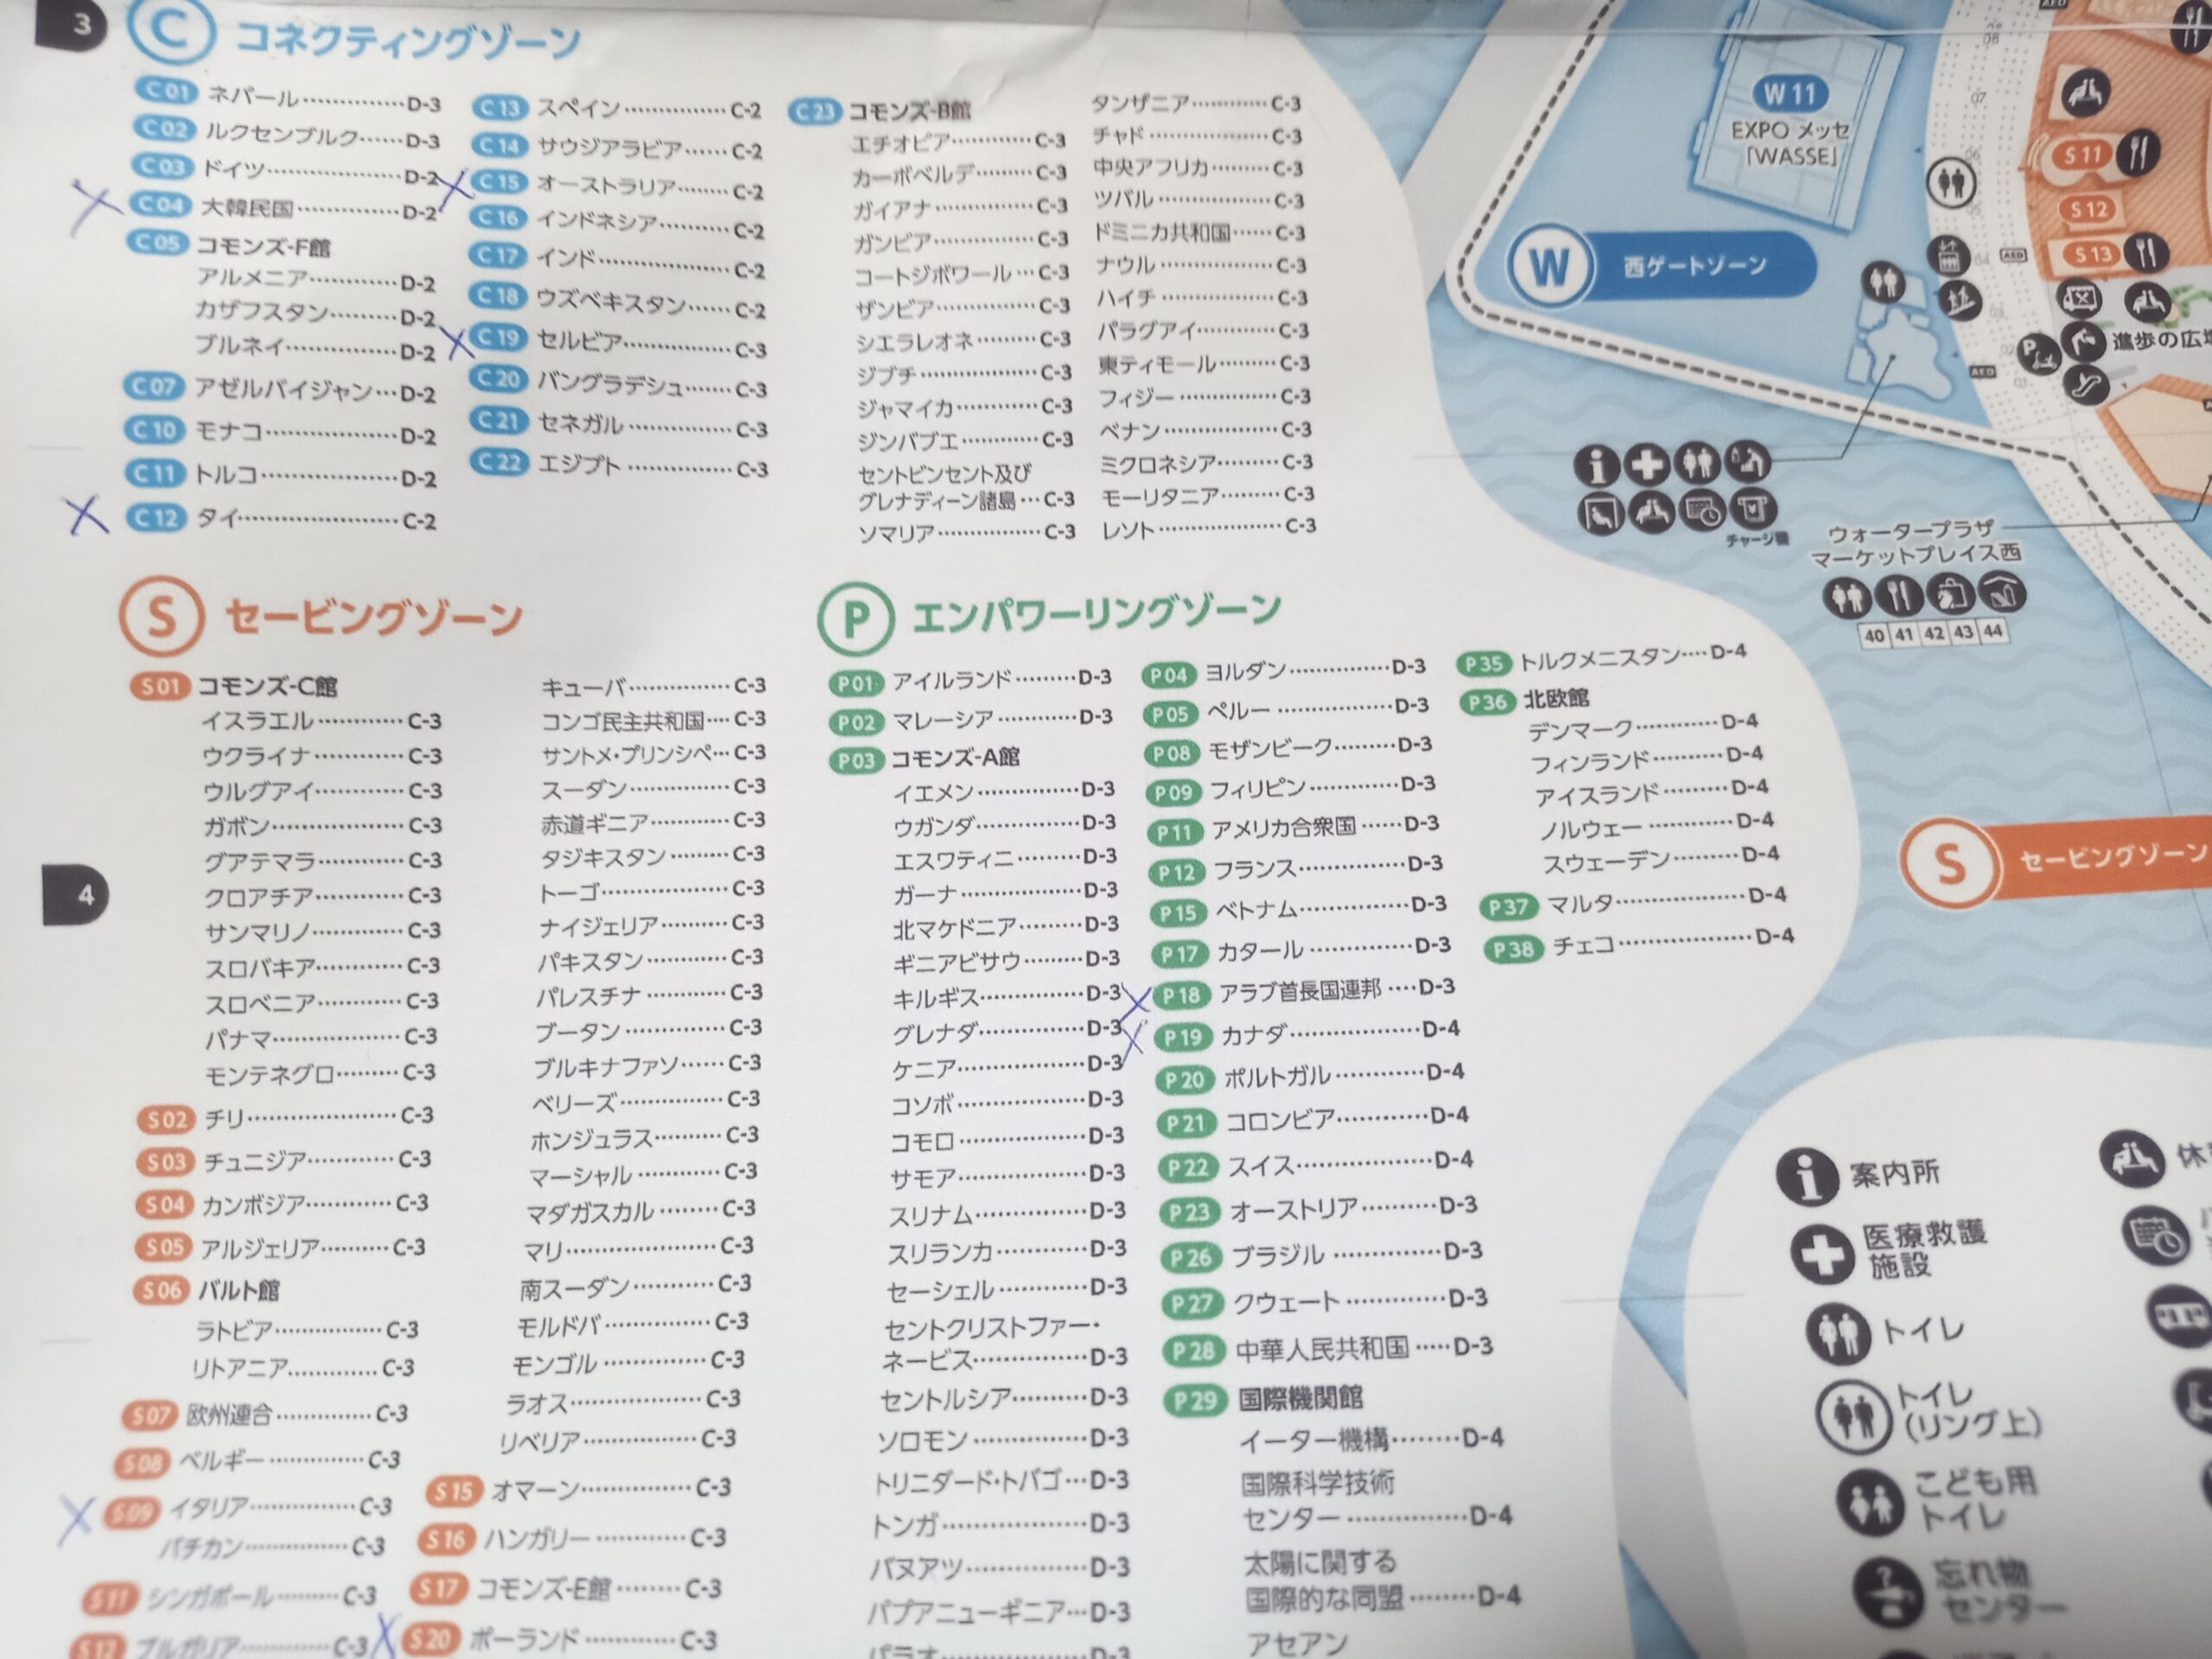 3
C コネクティングゾーン
C01 ネパール……………D-3
C02 ルクセンブルク……D-3
C03 ドイツ…………………D-2
C04 大韓民国……………D-2
C05 コモンズ-F館
アルメニア……………D-2
カザフスタン…………D-2
ブルネイ………………D-2
C07 アゼルバイジャン…D-2
C10 モナコ…………………D-2
C11 トルコ…………………D-2
C12 タイ……………………C-2
C13 スペイン……………C-2
C14 サウジアラビア……C-2
C15 オーストラリア……C-2
C16 インドネシア………C-2
C17 インド…………………C-2
C18 ウズベキスタン……C-2
C19 セルビア……………C-3
C20 バングラデシュ……C-3
C21 セネガル……………C-3
C22 エジプト……………C-3
C23 コモンズ-B館
エチオピア…………C-3
カーボベルデ………C-3
ガイアナ……………C-3
ガンビア……………C-3
コートジボワール…C-3
ザンビア……………C-3
シエラレオネ………C-3
ジブチ………………C-3
ジャマイカ…………C-3
ジンバブエ…………C-3
セントビンセント及び
グレナディーン諸島…C-3
ソマリア……………C-3
タンザニア…………C-3
チャド………………C-3
中央アフリカ………C-3
ツバル………………C-3
ドミニカ共和国……C-3
ナウル………………C-3
ハイチ………………C-3
パラグアイ…………C-3
東ティモール………C-3
フィジー……………C-3
ベナン………………C-3
ミクロネシア………C-3
モーリタニア………C-3
レソト………………C-3
W11
EXPO メッセ
「WASSE」
W 西ゲートゾーン
08
07
06
04
S11
S12
S13
AED
AED
進歩の広場
チャージ機
ウォータープラザ
マーケットプレイス西
40 41 42 43 44
4
S セービングゾーン
S01 コモンズ-C館
イスラエル…………C-3
ウクライナ…………C-3
ウルグアイ…………C-3
ガボン………………C-3
グアテマラ…………C-3
クロアチア…………C-3
サンマリノ…………C-3
スロバキア…………C-3
スロベニア…………C-3
パナマ………………C-3
モンテネグロ………C-3
S02 チリ…………………C-3
S03 チュニジア…………C-3
S04 カンボジア…………C-3
S05 アルジェリア………C-3
S06 バルト館
ラトビア……………C-3
リトアニア…………C-3
S07 欧州連合……………C-3
S08 ベルギー……………C-3
S09 イタリア……………C-3
バチカン……………C-3
S11 シンガポール………C-3
S12 ブルガリア…………C-3
キューバ……………C-3
コンゴ民主共和国…C-3
サントメ・プリンシペ…C-3
スーダン……………C-3
赤道ギニア…………C-3
タジキスタン………C-3
トーゴ………………C-3
ナイジェリア………C-3
パキスタン…………C-3
パレスチナ…………C-3
ブータン……………C-3
ブルキナファソ……C-3
ベリーズ……………C-3
ホンジュラス………C-3
マーシャル…………C-3
マダガスカル………C-3
マリ…………………C-3
南スーダン…………C-3
モルドバ……………C-3
モンゴル……………C-3
ラオス………………C-3
リベリア……………C-3
S15 オマーン……………C-3
S16 ハンガリー…………C-3
S17 コモンズ-E館………C-3
S20 ポーランド…………C-3
P エンパワーリングゾーン
P01 アイルランド………D-3
P02 マレーシア…………D-3
P03 コモンズ-A館
イエメン……………D-3
ウガンダ……………D-3
エスワティニ………D-3
ガーナ………………D-3
北マケドニア………D-3
ギニアビサウ………D-3
キルギス……………D-3
グレナダ……………D-3
ケニア………………D-3
コソボ………………D-3
コモロ………………D-3
サモア………………D-3
スリナム……………D-3
スリランカ…………D-3
セーシェル…………D-3
セントクリストファー・
ネービス……………D-3
セントルシア………D-3
ソロモン……………D-3
トリニダード・トバゴ…D-3
トンガ………………D-3
バヌアツ……………D-3
パプアニューギニア…D-3
パラオ………………D-3
P04 ヨルダン……………D-3
P05 ペルー………………D-3
P08 モザンビーク………D-3
P09 フィリピン…………D-3
P11 アメリカ合衆国……D-3
P12 フランス……………D-3
P15 ベトナム……………D-3
P17 カタール……………D-3
P18 アラブ首長国連邦…D-3
P19 カナダ………………D-4
P20 ポルトガル…………D-4
P21 コロンビア…………D-4
P22 スイス………………D-4
P23 オーストリア………D-3
P26 ブラジル……………D-3
P27 クウェート…………D-3
P28 中華人民共和国……D-3
P29 国際機関館
イーター機構………D-4
国際科学技術
センター……………D-4
太陽に関する
国際的な同盟………D-4
アセアン
P35 トルクメニスタン…D-4
P36 北欧館
デンマーク…………D-4
フィンランド………D-4
アイスランド………D-4
ノルウェー…………D-4
スウェーデン………D-4
P37 マルタ………………D-4
P38 チェコ………………D-4
S セービングゾーン
案内所
医療救護
施設
トイレ
トイレ
(リング上)
こども用
トイレ
忘れ物
センター